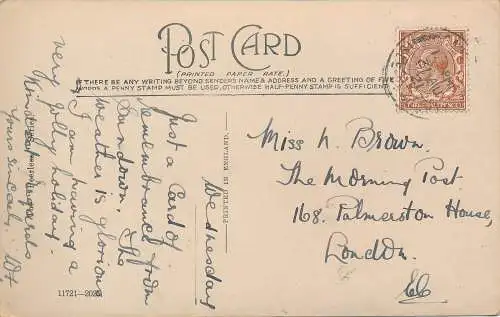 POST CARD
(PRINTED PAPER RATE.)
IF THERE BE ANY WRITING BEYOND SENDERS NAME & ADDRESS AND A GREETING OF FIVE
WORDS A PENNY STAMP MUST BE USED, OTHERWISE HALF-PENNY STAMP IS SUFFICIENT
Wednesday
Just a Card of
remembrance from
Sandown. The
weather is glorious
& I am having a
very jolly holiday.
Kindest Regards
Yours sincerely
PRINTED IN ENGLAND.
Miss N. Brown.
The Morning Post.
168. Palmerston House,
London.
EC